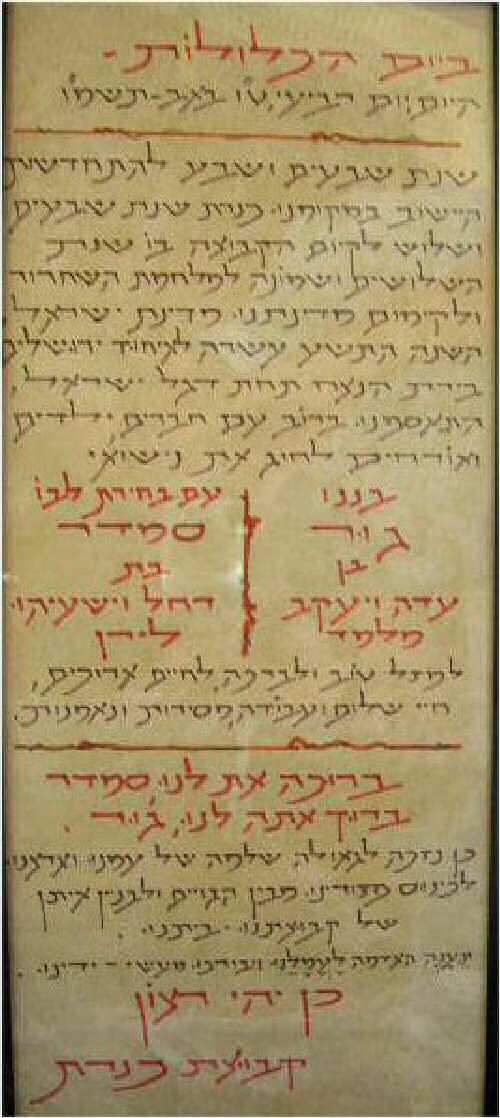 ביום הכלולות -
היום, יום רביעי, ט"ו באב-תשמ"ו
שנת שבעים ושבע להתחדשות
הישוב במקומנו- כנרת שנת שבעים
ושלוש לקיום הקבוצה בו שנת
השלושים ושמונה למלחמת השחרור
ולקיומים מדינתנו- מדינת ישראל,
השנה התשע עשרה לאיחוד ירושלים
בירת הנצח תחת דגל ישראל,
התאספנו- ברוב עם חברים ילדים
ואורחים לחוג את נישואי
בננו
גור
בן
עדה ויעקב
מלמד
עם בחירת לבו
סמדר
בת
רחל וישעיהו
לירן
למזל טוב ולברכה, לחיים ארוכים,
חיי שלום ועבודה, מסירות ונאמנות.
ברוכה את לנו, סמדר
ברוך אתה לנו, גור.
כן נזכה לגאולה שלמה של עמנו וארצנו
לכינוס פזורינו מבין הגויים ולבנין איתן
של קבוצתנו - ביתנו.
תענה האדמה לעמלנו ובורכו מעשי - ידינו.
כן יהי רצון
קבוצת כנרת